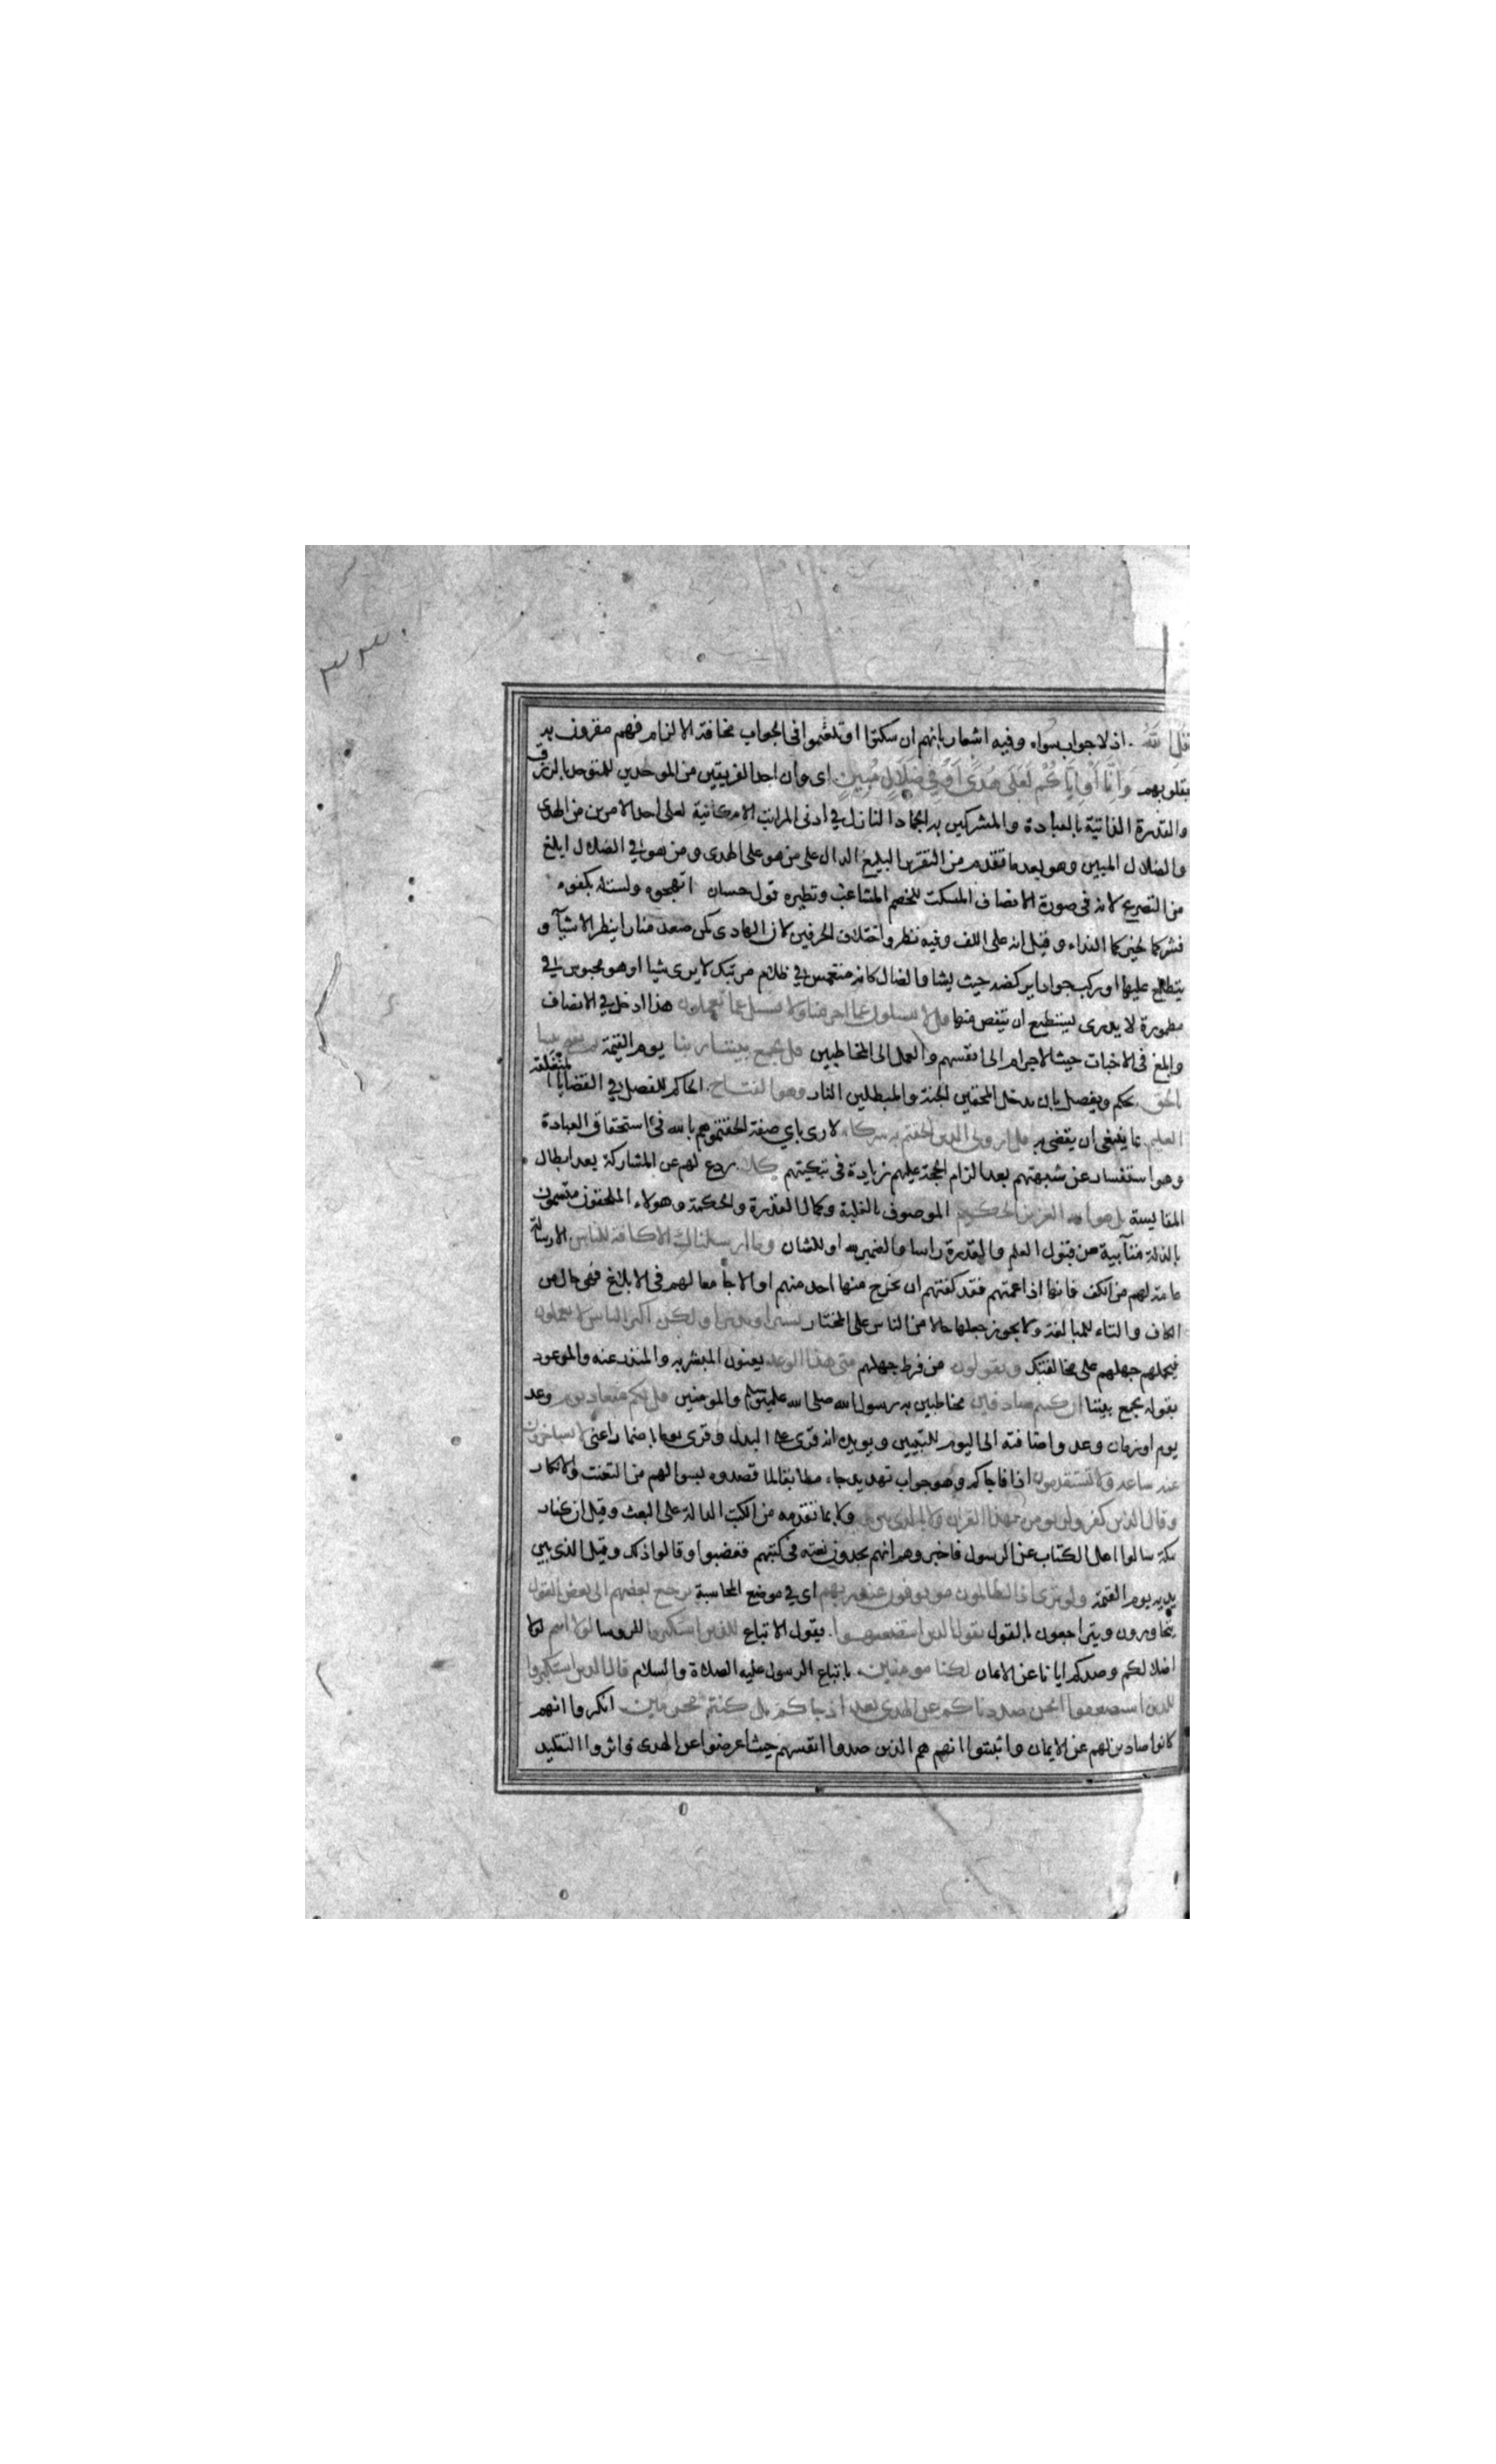 ٣٣٠
قل الله اذ لا جواب سواه وفيه اشعار بانهم ان سكتوا او تلعثموا فى الجواب مخافة الالزام فهم مقرون به
بقلوبهم وَاِنَّا اَوْ اِيَّاكُمْ لَعَلَى هُدًى اَوْ فِي ضَلَالٍ مُبِينٍ اى وان احد الفريقين من الموحدين للمتوحد بالرزق
والقدرة الذاتية بالعبادة والمشركين به الجماد النازل في ادنى المراتب الامكانية لعلى احد الامرين من الهدى
والضلال المبين وهو بعد ما تقدم من التقرير البليغ الدال على من هو على الهدى ومن هو في الضلال ابلغ
من التصريح لانه فى صورة الانصاف المسكت للخصم المشاغب ونظيره قول حسان اتهجوه ولست له بكفوء
فشركما لخيركما الفداء وقيل انه على اللف وفيه نظر واختلاف الحرفين لان الهادى كمن صعد منارا ينظر الاشيآ و
يتطلع عليها او ركب جوادا يركضه حيث يشا والضال كانه منغمس في ظلام مرتبك لا يرى شيا او هو محبوس في
مطمورة لا يدرى يستطيع ان يتفصى منها قل لا تسئلون عما اجرمنا ولا نسئل عما تعملون هذا ادخل في الانصاف
وابلغ فى الاخبات حيث الاجرام الى انفسهم والعمل الى المخاطبين قل يجمع بيننا ربنا يوم القيمة ثم يفتح بيننا
بالحق يحكم ويفصل بان يدخل المحقين الجنة والمبطلين النار وهو الفتاح الحاكم الفصل في القضايا المنغلقة
العليم بما ينبغى ان يقضى به قل ارونى الذين الحقتم به شركاء لارى باي صفة الحقتموهم بالله فى استحقاق العبادة
وهو استفسار عن شبهتهم بعد الزام الحجة عليهم زيادة فى تبكيتهم كلا ردع لهم عن المشاركة بعد ابطال
المقايسة بل هو الله العزيز الحكيم الموصوف بالغلبة وكمال القدرة والحكمة وهولاء الملحقون متسمون
بالذلة متآبية عن قبول العلم والقدرة راسا والضمير لله او للشان وما ارسلناك الا كافة للناس الا رسالة
عامة لهم من الكف فانها اذا عمتهم فقد كفتهم ان يخرج منها احد منهم او الا جامعا لهم فى الابلاغ فهى حال من
الكاف والتاء للمبالغة ولا يجوز جعلها حالا من الناس على المختار بشيرا ونذيرا ولكن اكثر الناس لا يعلمون
فيحملهم جهلهم على مخالفتك ويقولون من فرط جهلهم متى هذا الوعد يعنون المبشر به والمنذر عنه والموعود
بقوله يجمع بيننا ان كنتم صادقين مخاطبين به رسول الله صلى الله عليه وسلم والمومنين قل لكم ميعاد يوم وعد
يوم او زمان وعد واضافته الى اليوم للتبيين ويويده انه قرى على البدل وقرى يوما باضمار اعنى لا تستاخرون
عنه ساعة ولا تستقدمون اذا فاجاكم وهو جواب تهديد جاء مطابقا لما قصدوه بسوالهم من التعنت والانكار
وقال الذين كفروا لن نومن بهذا القران ولا بالذى بين يديه ولا بما تقدمه من الكتب الدالة على البعث وقيل ان كفار
مكة سالوا اهل الكتاب عن الرسول فاخبروهم انهم يجدون نعته فى كتبهم فغضبوا وقالوا ذلك وقيل الذى بين
يديه يوم القيمة ولو ترى اذ الظالمون موقوفون عند ربهم اى في موضع المحاسبة يرجع بعضهم الى بعض القول
يتحاورون ويتراجعون القول يقول الذين استضعفوا يقول الاتباع للذين استكبروا للروسا لولا انتم لولا
اضلالكم وصدكم ايانا عن الايمان لكنا مومنين باتباع الرسول عليه الصلاة والسلام قال الذين استكبروا
للذين استضعفوا انحن صددناكم عن الهدى بعد اذ جاكم بل كنتم مجرمين انكروا انهم
كانوا صادين لهم عن الايمان واثبتوا انهم هم الذين صدوا انفسهم حيث اعرضوا عن الهدى واثروا التقليد